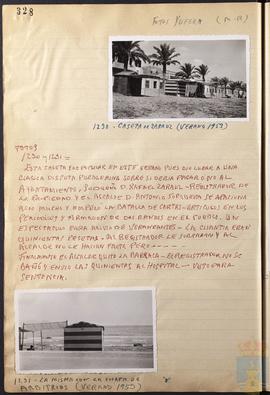 328
FOTOS YUFERA (M-R)
1230 - CASETA DE ZARAUZ (VERANO 1953)
FOTOS
1230 y 1231 =
ESTA CASETA FUE POPULAR EN ESTE VERANO PUES DIO LUGAR A UNA
CLASICA DISPUTA PUEBLERINA SOBRE SI DEBIA PAGAR O NO AL
AYUNTAMIENTO. SU DUEÑO D. RAFAEL ZARAUZ - REGISTRADOR DE
LA PROPIEDAD Y EL ALCALDE D. ANTONIO SE APASIONA
RON MUCHO Y EMPEZO LA BATALLA DE CARTAS - ARTICULOS EN LOS
PERIODICOS Y ARMANDOSE DOS BANDOS EN EL PUEBLO. UN
ESPECTACULO PARA DE VERANEANTES - LA CUANTIA ERAN
QUINIENTAS PESETAS - AL REGISTRADOR LE SOBRABAN Y AL
ALCALDE NO LE HACIAN FALTA PERO - - - - -
FINALMENTE EL ALCALDE QUITO LA BARRACA - EL REGISTRADOR NO SE
BAÑO Y ENVIO LAS QUINIENTAS AL HOSPITAL -
SENTENCIA.
1231 - LA MISMA CON LA DE
ARBITRIOS (VERANO 1953)